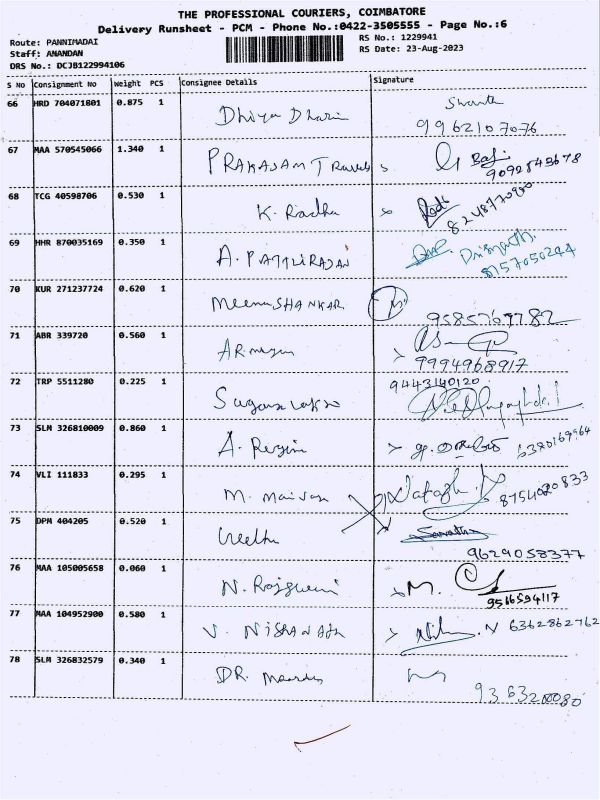 THE PROFESSIONAL COURIERS, COIMBATORE
Delivery Runsheet - PCM - Phone No.:0422-3505555 - Page No.:6
Route: PANNIMADAI
RS No.: 1229941
Staff: ANANDAN
RS Date: 23-Aug-2023
DRS No.: DCJB122994106
S No Consignment No Weight PCS Consignee Details Signature
66 HRD 704071801 0.875 1 Dhiya Dharin
9962107076
67 MAA 570545066 1.340 1 PRAKASAM Travels
9092543678
68 TCG 40598706 0.530 1 K. Radha
69 HHR 870035169 0.350 1 A. PATTLIRAJAN
8157050244
70 KUR 271237724 0.620 1 Meenu SHANKAR
9585769782
71 ABR 339720 0.560 1
9994968917
72 TRP 5511280 0.225 1 9443140120
73 SLM 326810009 0.860 1 A. Regina
6370169964
74 VLI 111833 0.295 1 M.
8754020833
75 DPM 404205 0.520 1
9629058377
76 MAA 105005658 0.060 1 N. M.
9566594117
77 MAA 104952900 0.580 1 V. NISHANATH 6362862762
78 SLM 326832579 0.340 1 DR.